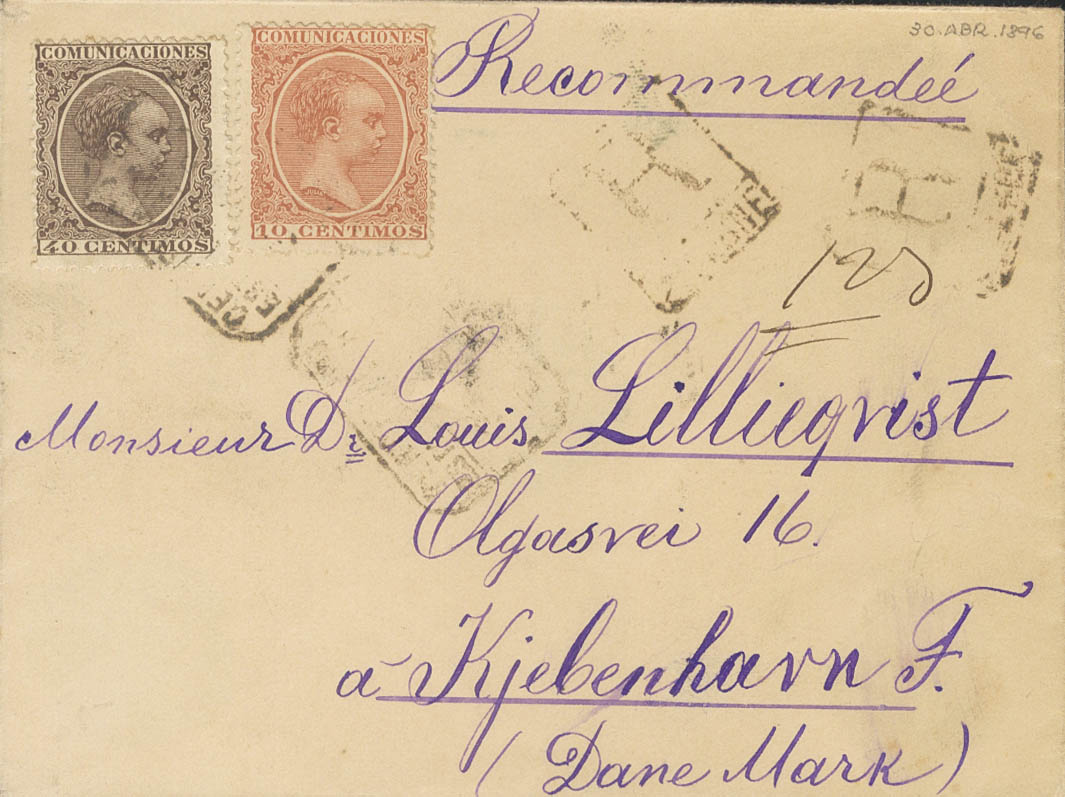 30. ABR. 1896
COMUNICACIONES
40 CENTIMOS
COMUNICACIONES
10 CENTIMOS
Recommandeé
R
R
123
Monsieur Dr Louis Lillieqvist
Olgasvei 16.
à Kjebenhavn F.
(Dane Mark)